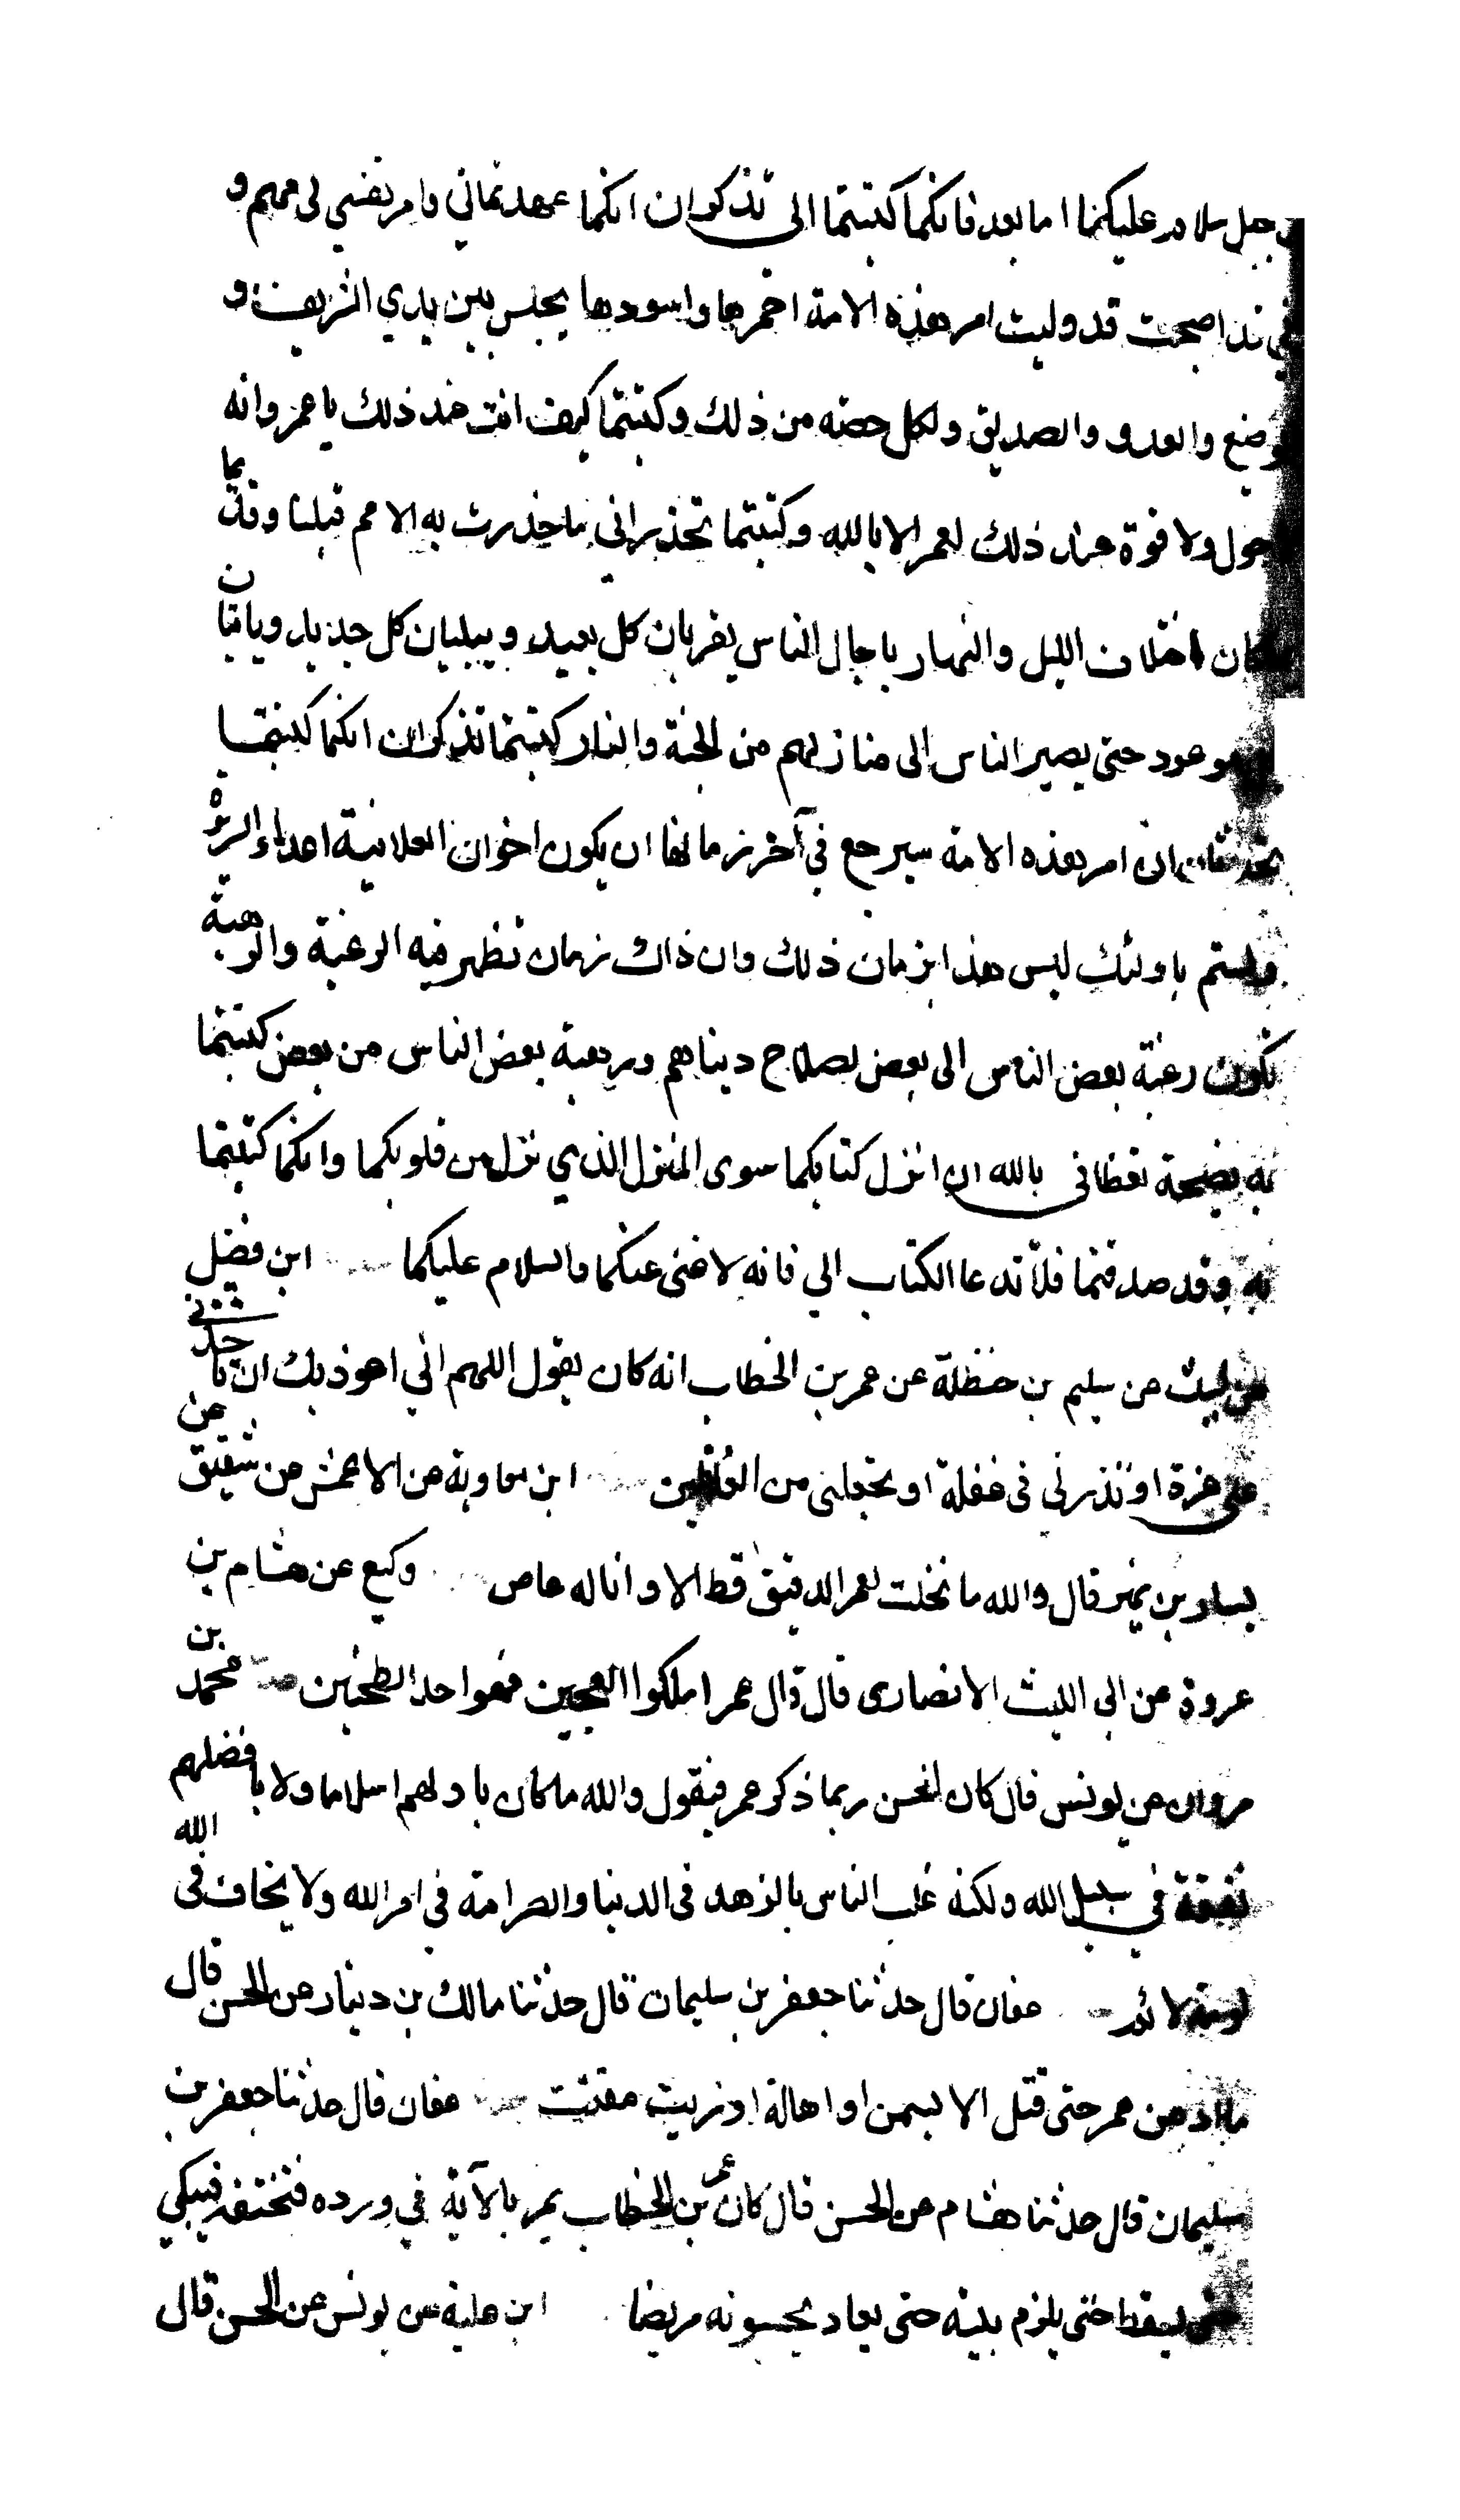 جبل سلام عليكما اما بعد فانكما كتبتما الى تذكران انكما عهدتماني وامر نفسي لي مهم و
اصبحت قد وليت امر هذه الامة احمرها واسودها يجلس بين يدي الشريف و
وضيع والعدو والصديق ولكل حصه من ذلك وكتبتما كيف انت عند ذلك يا عمر وانه
حول ولا قوة عند ذلك لعمر الا بالله وكتبتما تحذراني بما حذرت به الامم قبلنا وقد يما
كان اختلاف الليل والنهار باجال الناس يقربان كل بعيد ويبليان كل جديد وياتيان
موعود حتى يصير الناس الى منازلهم من الجنة والنار كتبتما تذكران انكما كنتما
تحدثان ان امر هذه الامة سيرجع في آخر زمانها ان يكون اخوان العلانية اعداء السريرة
ولستم باولئك ليس هذا بزمان ذلك وان ذاك زمان تظهر فيه الرغبة والرهبة
تكون رغبة بعض الناس الى بعض لصلاح دنياهم ورهبة بعض الناس من بعض كتبتما
به نصيحة تعظاني بالله ان انزل كتابكما سوى المنزل الذي نزل من قلوبكما وانكما كتبتما
به وقد صدقتما فلا تدعا الكتاب الي فانه لا غنى عنكما والسلام عليكما ابن فضيل
عن ليث عن سليم بن حنظلة عن عمر بن الخطاب انه كان يقول اللهم اني اعوذ بك ان تاخذني
على غرة او تذرني في غفلة او تجعلني من الغافلين ابن معاوية عن الاعمش عن شقيق عن
يسار بن نمير قال والله ما نخلت لعمر الدقيق قط الا وانا له عاص وكيع عن هشام بن
عروة عن ابي الليث الانصاري قال قال عمر املكوا العجين فهو احد الطحنين محمد بن
مروان عن يونس قال كان الحسن ربما ذكر عمر فيقول والله ما كان باولهم اسلاما ولا بافضلهم
نفقة في سبيل الله ولكنه غلب الناس بالزهد في الدنيا والصرامة في امر الله ولا يخاف في الله
لومة لائم عفان قال حدثنا جعفر بن سليمان قال حدثنا مالك بن دينار عن الحسن قال
ما ادهن عمر حتى قتل الا بسمن او اهالة او زيت مقتت عفان قال حدثنا جعفر بن
سليمان قال حدثنا هشام عن الحسن قال كان عمر بن الخطاب يمر بالآية في ورده فتخنقه فيبكي
حتى يسقط حتى يلزم بيته حتى يعاد يحسبونه مريضا ابن علية عن يونس عن الحسن قال